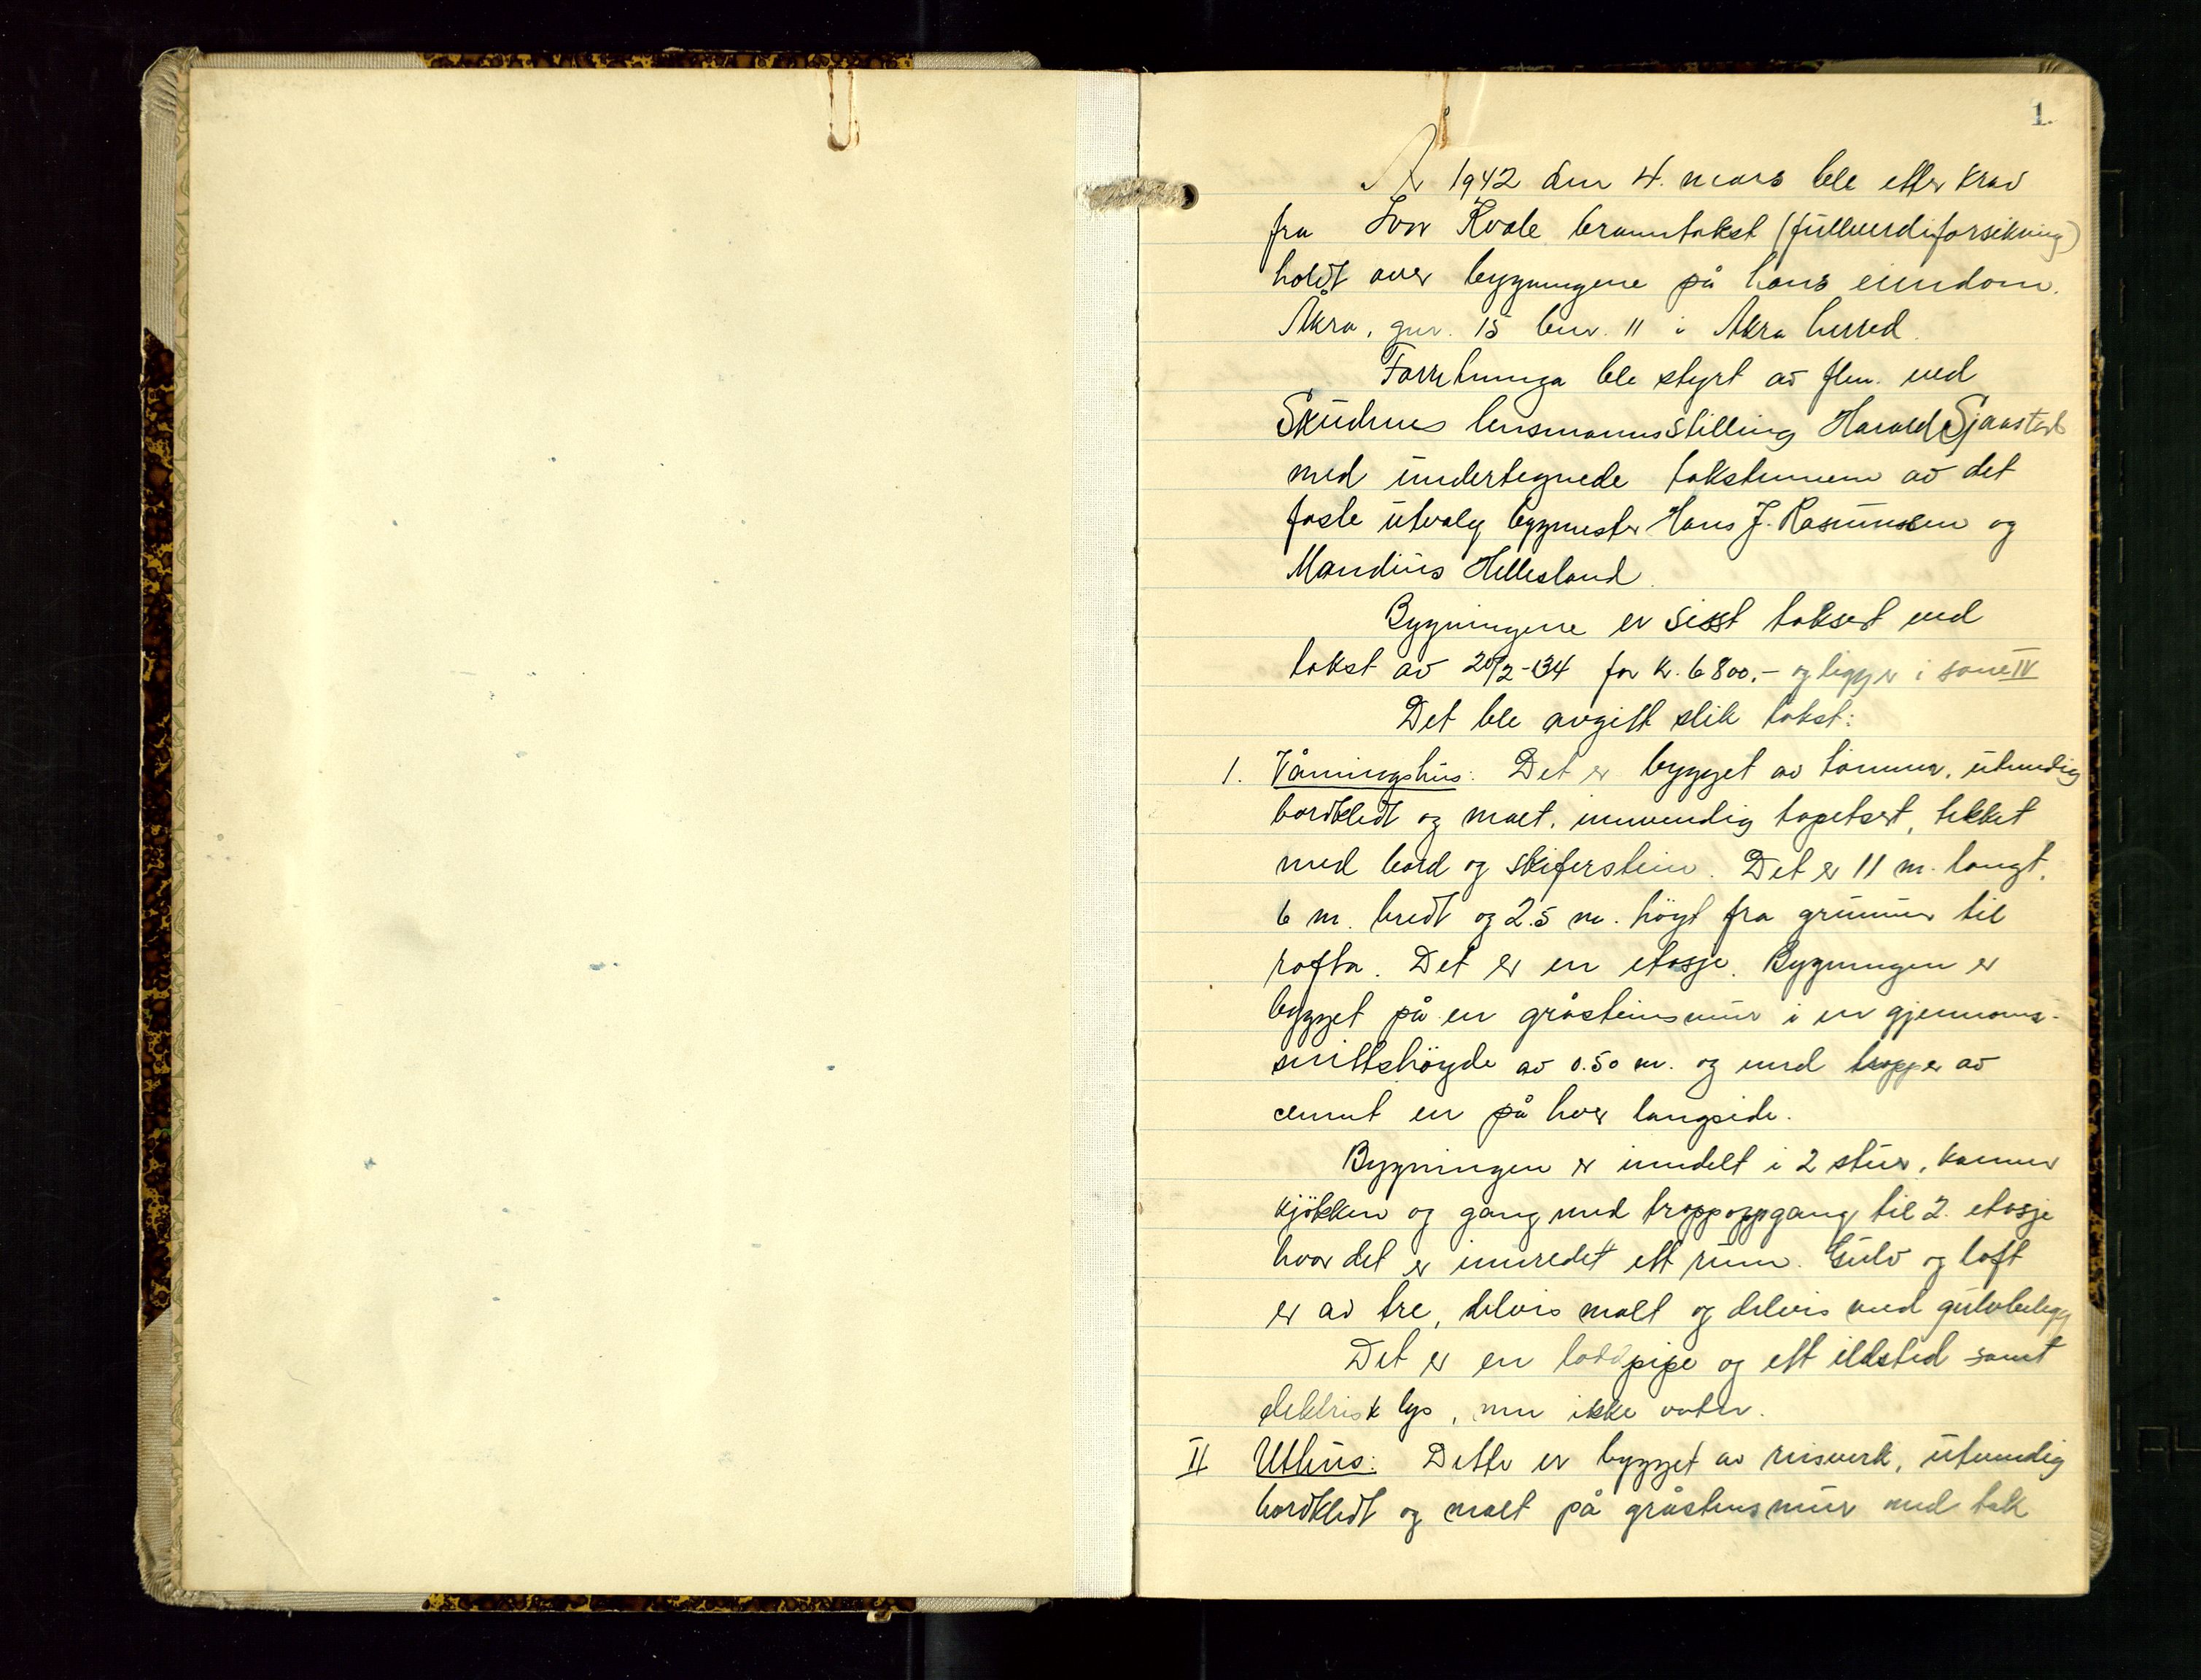 1.
År 1942 den 4. mars ble etter krav
fra Ivar Kvale branntakst (fullverdiforsikring)
holdt over bygningene på hans eiendom.
Åkra, gnr. 15 bnr. 11 i Åkra herred.
Forretninga ble styrt av flm. ved
Skudenes lensmannsstilling Harald Sjaastad
med undertegnede takstmenn av det
faste utvalg byggmester Hans J. Rasmussen og
Mandius Hellesland.
Bygningene er sisst taksert ved
takst av 20/2-34 for kr. 6800.- og ligger i sone IV
Det ble avgitt slik takst:
1. Våningshus: Det er bygget av tømmer, utvendig
bordkledt og malt, innvendig tapetsert, tekket
med bord og skiferstein. Det er 11 m. langt,
6 m. bredt og 2.5 m. höyt fra grunnur til
rafta. Det er en etasje. Bygningen er
bygget på en gråsteinsmur i en gjennom-
snittshöyde av 0.50 m. og med trapper av
cement en på hver langside.
Bygningen er inndelt i 2 stuer, kammer
kjökken og gang med trappoppgang til 2. etasje
hvor det er innredet ett rum. Gulv og loft
er av tre, delvis malt og delvis med gulvbelegg
Det er en loddpipe og ett ildsted samt
elektrisk lys, men ikke vatn.
II Uthus: Dette er bygget av reisverk, utvendig
bordkledt og malt på gråstensmur med tak